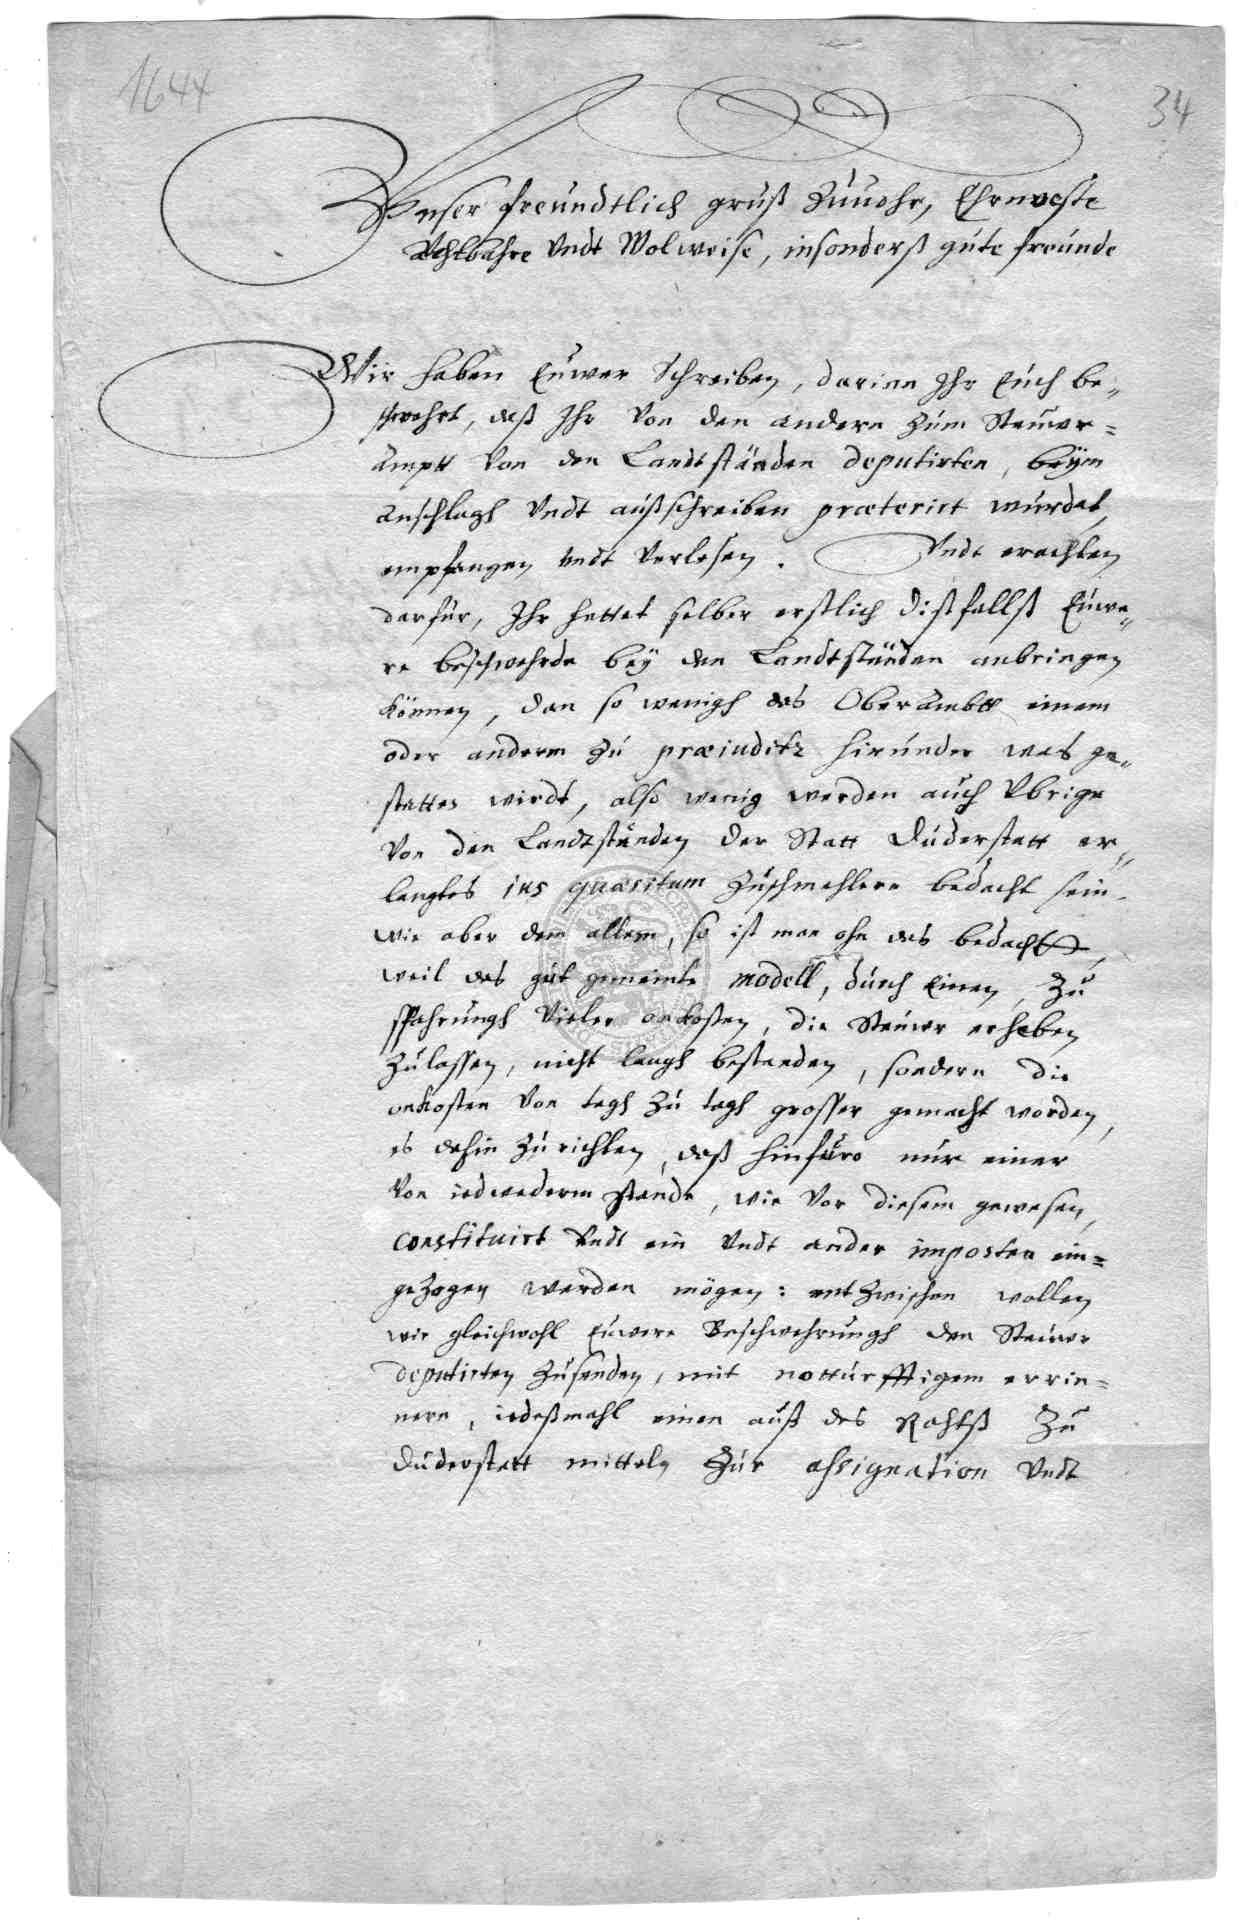 1644
34
Vnser freundtlich gruß Zuuohr, Ehrnveste
Achtbahre Vndt Wolweise, insonderß gute freunde
Wir haben Euwer Schreiben, darinn Ihr Euch be„
schwehrt, daß Ihr Von den andern Zum Steuwr=
ampt Von den Landtständen deputirten, beÿm
anschlagh Vndt außschreiben præterirt würdet,
empfangen vndt Verlesen. Vndt erachten
darfür, Ihr hettet selber erstlich dißfallß Euwe„
re beschwehrde beÿ den Landtständen anbringen
können, dan so wenigh das Oberambtt einem
oder anderm Zu præiuditz hirunder was ge„
stattes wirdt, also wenig werden auch Vbrige
Von den Landtständen der Statt Duderstatt er„
langtes ius quæsitum Zuschmehlern bedacht sein.
Wie aber dem allem, so ist man ohn das bedacht,
weil das gut gemeinte modell, durch Einen, Zu
spahrungh Vieler onkosten, die Steuwr erheben
Zulassen, nicht langh bestanden, sondern die
onkosten Von tagh Zu tagh grosser gemacht worden,
es dahin Zurichten, daß hinfüro nur einer
Von iedwederm stande, wie Vor diesem gewesen,
constituirt Vndt ein Vndt ander imposten ein=
geZogen werden mögen: entZwischen wollen
wir gleichwohl Euwere Beschwehrungh den Steuwr
deputirten Zusenden, mit notturfftigem errin=
nern, iedeßmahl einen auß des Rahtß Zu
Duderstatt mitteln Zur assignation Vndt